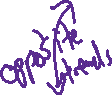 opposite
intervals